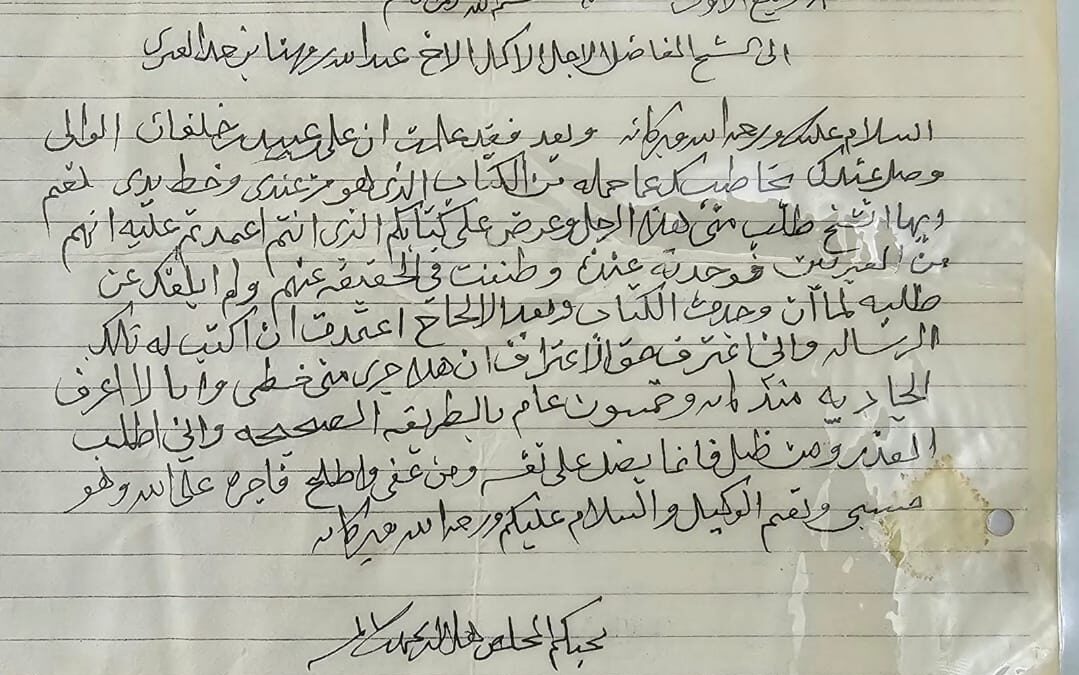 ربيع الاول بسم الله الرحمن الرحيم
الى الشيخ الفاضل الاجل الاكمل الاخ عبدالله مهنا بن حمد العبري
السلام عليك ورحمة الله وبركاته وبعد فقد علمت ان علي عبيد خلفان الوالى
وصل عندك يخاطبك عما حمله من الكتاب الذي هو من عندي وخط يدي نعم
ايها الشيخ طلب مني هذا الرجل وعرض علي كتابكم الذي انتم اعمدتم عليه انهم
من العبريين فوجدته عنده وظننت في الحقيقه عنهم ولم ايلفك عن
طلبه لما ان وجدت الكتاب وبعد الالحاح اعتمدت ان اكتب له تلك
الرساله واني اعترف حق الاعتراف ان هذا جرى مني خطى وانا لا اعرف
منذ وخمسون عام بالطريقه الصحيحه واني اطلب
العذر ومن ظل فانما يضل على نفسه ومن عفى واصلح فاجره على الله وهو
حسبي ونعم الوكيل والسلام عليكم ورحمة الله وبركاته
محبكم المخلص